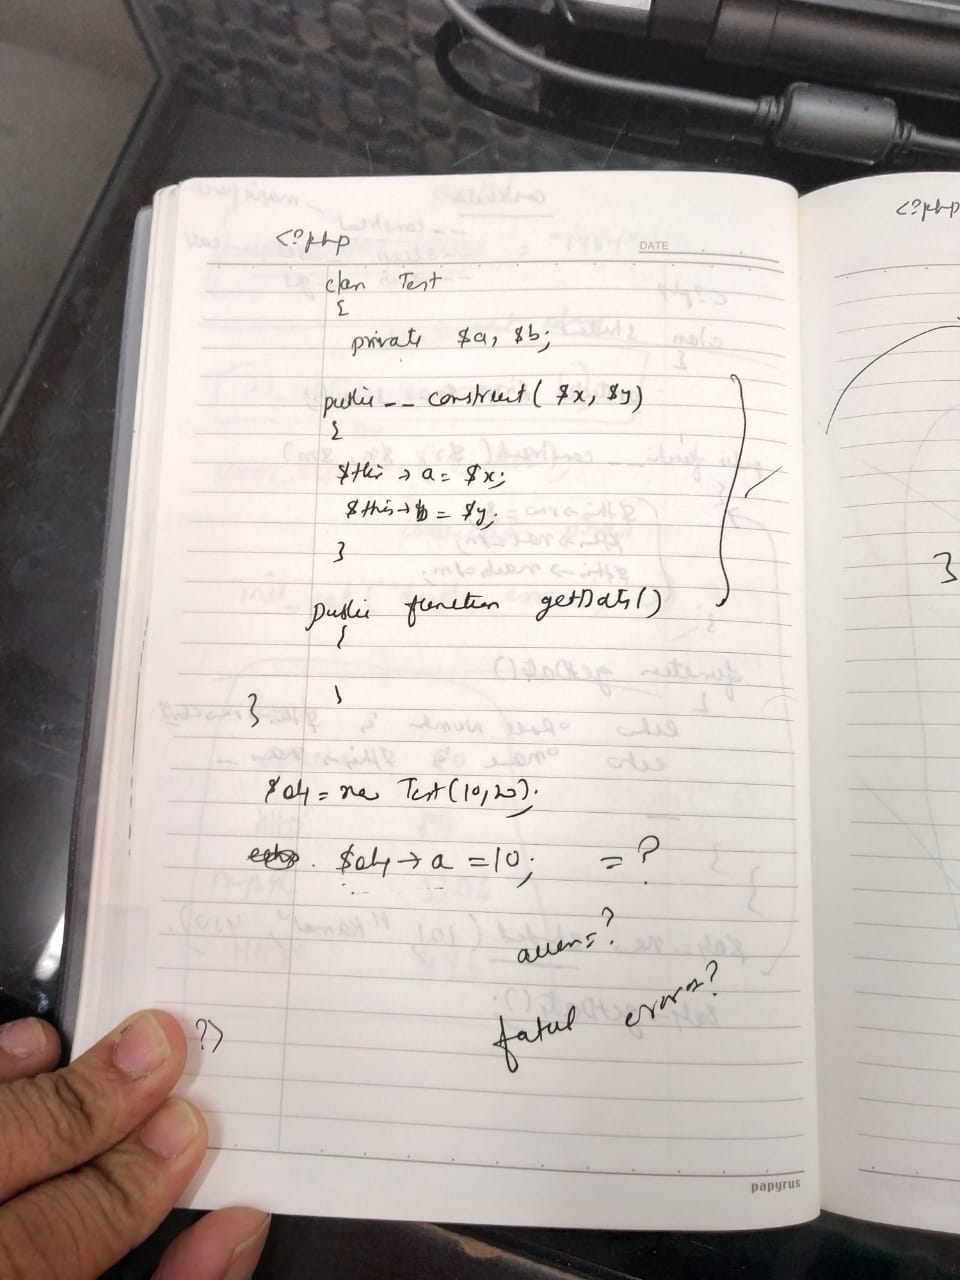 <?php
DATE
class Test
{
private $a, $b;
public __ construct ( $x, $y)
{
$this → a = $x;
$this → b = $y;
}
public function getData()
{
}
}
$obj = new Test(10,20);
$obj → a = 10; = ?
access?
fatal error?
?>
papyrus
<?php
}